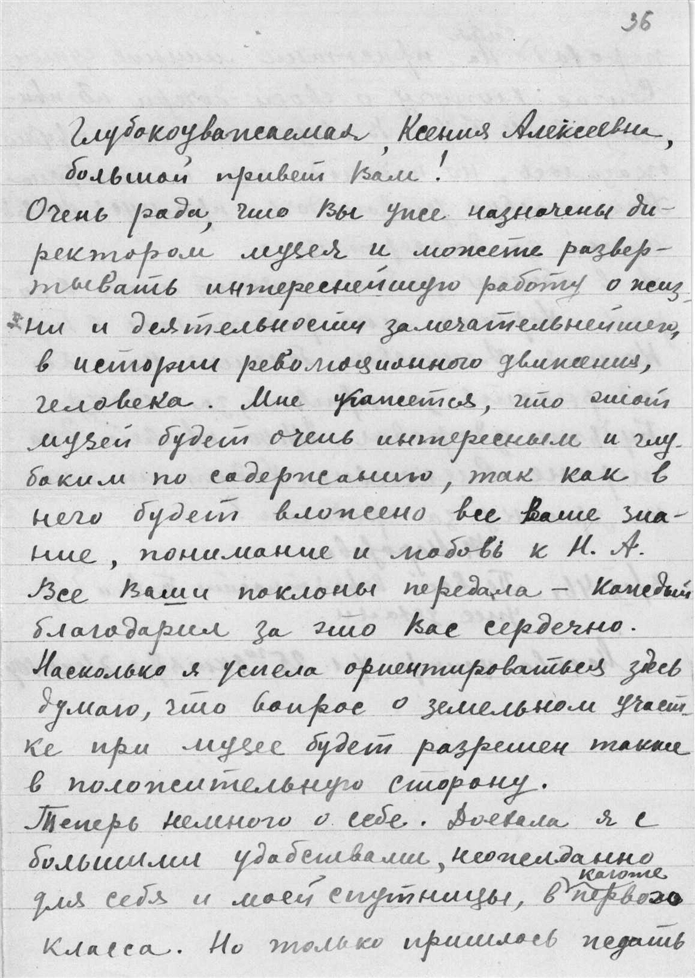 36
Глубокоуважаемая, Ксения Алексеевна,
большой привет Вам!
Очень рада, что Вы уже назначены ди-
ректором музея и можете развер-
тывать интереснейшую работу о жиз-
ни и деятельности замечательнейшего,
в истории революционного движения,
человека. Мне кажется, что этот
музей будет очень интересным и глу-
боким по содержанию, так как в
него будет вложено все ваше зна-
ние, понимание и любовь к Н. А.
Все Ваши поклоны передала – Каждый
благодарил за это Вас сердечно.
Насколько я успела ориентироваться здесь
думаю, что вопрос о земельном участ-
ке при музее будет разрешен также
в положительную сторону.
Теперь немного о себе. Доехала я с
большими удобствами, неожиданно
для себя и моей спутницы, в первого
класса. Но только пришлось